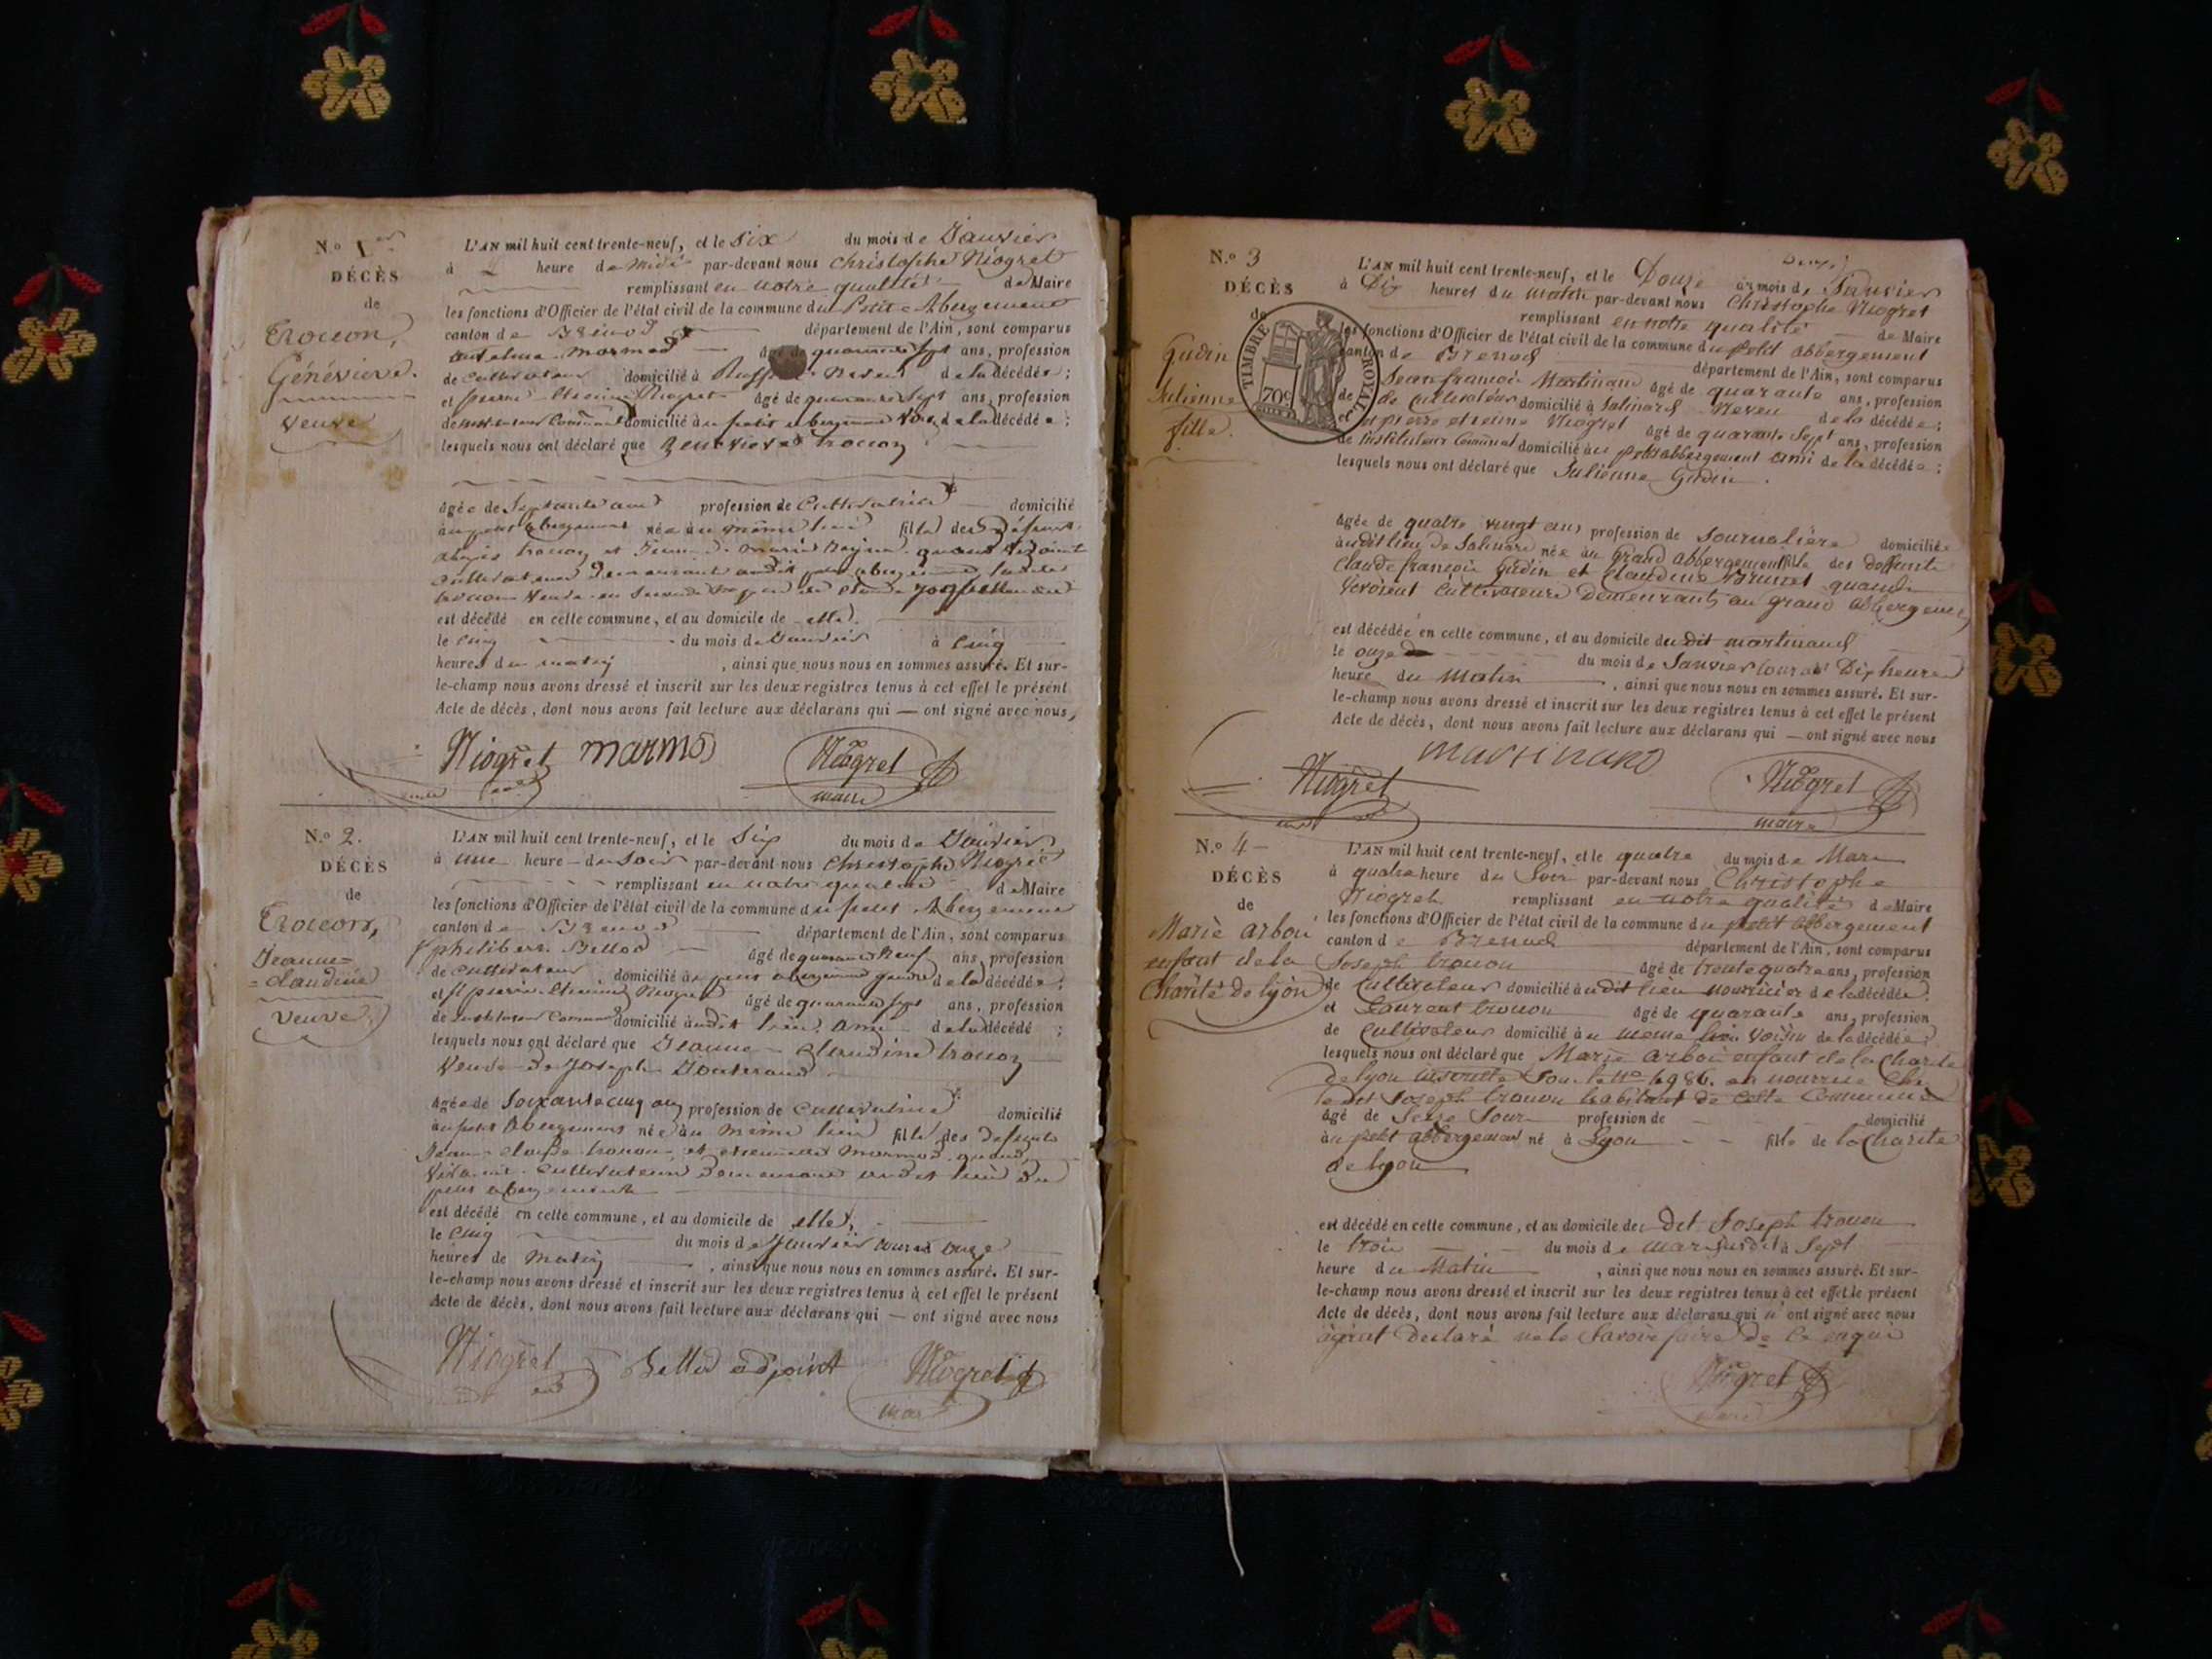 N.º 1er
DÉCÈS
de
Trocon,
Généviève.
veuve
L'AN mil huit cent trente-neuf, et le six du mois de Janvier
à heure de midi par-devant nous Christophe Niogret
remplissant en notre qualité de Maire
les fonctions d'Officier de l'état civil de la commune du Petit Abergement
canton de Brénod département de l'Ain, sont comparus
Mormod âgé de quarante sept ans, profession
de cultivateur domicilié à Neveu de la décédée ;
et pierre Etienne Niogret âgé de quarante sept ans, profession
de instituteur Communal domicilié au petit abergement de la décédée ;
lesquels nous ont déclaré que Genevieve trocon
âgée de Septante ans profession de Cultivatrice domicilié
au petit abergement née au même lieu fille des défunts
trocon et marie quand vivoint
cultivateurs demeurant audit petit abergement
est décédé en cette commune, et au domicile de elle.
le cinq du mois de Janvier à cinq
heures du matin , ainsi que nous nous en sommes assuré. Et sur-
le-champ nous avons dressé et inscrit sur les deux registres tenus à cet effet le présent
Acte de décès, dont nous avons fait lecture aux déclarans qui — ont signé avec nous,
Niogret marmo Niogret
maire
N.º 2.
DÉCÈS
de
Trocon,
Jeanne=
=claudine
veuve.
L'AN mil huit cent trente-neuf, et le Six du mois de Janvier
à une heure du soir par-devant nous Christophe Niogret
remplissant en notre qualité de Maire
les fonctions d'Officier de l'état civil de la commune du petit Abergement
canton de Brenod département de l'Ain, sont comparus
philibert Bellod âgé de quarante neuf ans, profession
de cultivateur domicilié au petit abergement gendre de la décédée ;
et pierre Etienne Niogret âgé de quarante sept ans, profession
de instituteur Communal domicilié audit lieu, ami de la décédé ;
lesquels nous ont déclaré que Jeanne claudine trocon
Veuve de Joseph
âgée de soixante cinq ans profession de cultivatrice domicilié
au petit Abergement née au même lieu fille des défunts
Jean claude trocon et etiennette Mormod quand
vivoint cultivateurs demeurant audit lieu du
petit abergement
est décédé en cette commune, et au domicile de elle,
le cinq du mois de Janvier courant onze
heures de matin , ainsi que nous nous en sommes assuré. Et sur-
le-champ nous avons dressé et inscrit sur les deux registres tenus à cet effet le présent
Acte de décès, dont nous avons fait lecture aux déclarans qui — ont signé avec nous
Niogret Bellod adjoint Niogret
maire
N.º 3
DÉCÈS
de
Gudin
Julienne
fille.
TIMBRE ROYAL
70c
L'AN mil huit cent trente-neuf, et le Douze du mois de Janvier
à Dix heures du matin par-devant nous Christophe Niogret
remplissant en notre qualité de Maire
les fonctions d'Officier de l'état civil de la commune du petit abbergement
canton de Brenod département de l'Ain, sont comparus
Jean françois Martinand âgé de quarante ans, profession
de Cultivateur domicilié à Salinard Neveu de la décédée ;
et pierre etienne Niogret âgé de quarante Sept ans, profession
de instituteur Communal domicilié au petit abbergement ami de la décédée ;
lesquels nous ont déclaré que Julienne Gudin.
âgée de quatre vingt ans profession de Journalière domiciliée
audit lieu de Salinard née au grand abbergement fille des deffunts
Claude françois Gudin et Claudine Brunet quand
vivoient Cultivateurs Demeurants au grand abbergement
est décédée en cette commune, et au domicile du dit martinand
le onze du mois de Janvier courant Dix heures
heure du matin , ainsi que nous nous en sommes assuré. Et sur-
le-champ nous avons dressé et inscrit sur les deux registres tenus à cet effet le présent
Acte de décès, dont nous avons fait lecture aux déclarans qui — ont signé avec nous
martinand
Niogret Niogret
maire
N.º 4
DÉCÈS
de
Marie arboi
enfant de la
Charité de lyon
L'AN mil huit cent trente-neuf, et le quatre du mois de Mars
à quatre heure du Soir par-devant nous Christophe
Niogret remplissant en notre qualité de Maire
les fonctions d'Officier de l'état civil de la commune du petit abbergement
canton de Brenod département de l'Ain, sont comparus
Joseph trocon âgé de trente quatre ans, profession
de Cultivateur domicilié au dit lieu nourricier de la décédée ;
et Laurent trocon âgé de quarante ans, profession
de Cultivateur domicilié au meme lieu voisin de la décédée ;
lesquels nous ont déclaré que Marie arboi enfant de la charité
de lyon inscritte Sous le no 6986. en nourrice chez
le dit Joseph trocon habitant de cette Commune
âgé de Seise Jours profession de domicilié
au petit abbergement né à Lyon fille de la charité
de lyon
est décédé en cette commune, et au domicile de dit Joseph trocon
le trois du mois de mars susdit à Sept
heure du Matin , ainsi que nous nous en sommes assuré. Et sur-
le-champ nous avons dressé et inscrit sur les deux registres tenus à cet effet le présent
Acte de décès, dont nous avons fait lecture aux déclarans qui n'ont signé avec nous
ayant declaré ne le Savoir faire de ce enquis
Niogret
maire